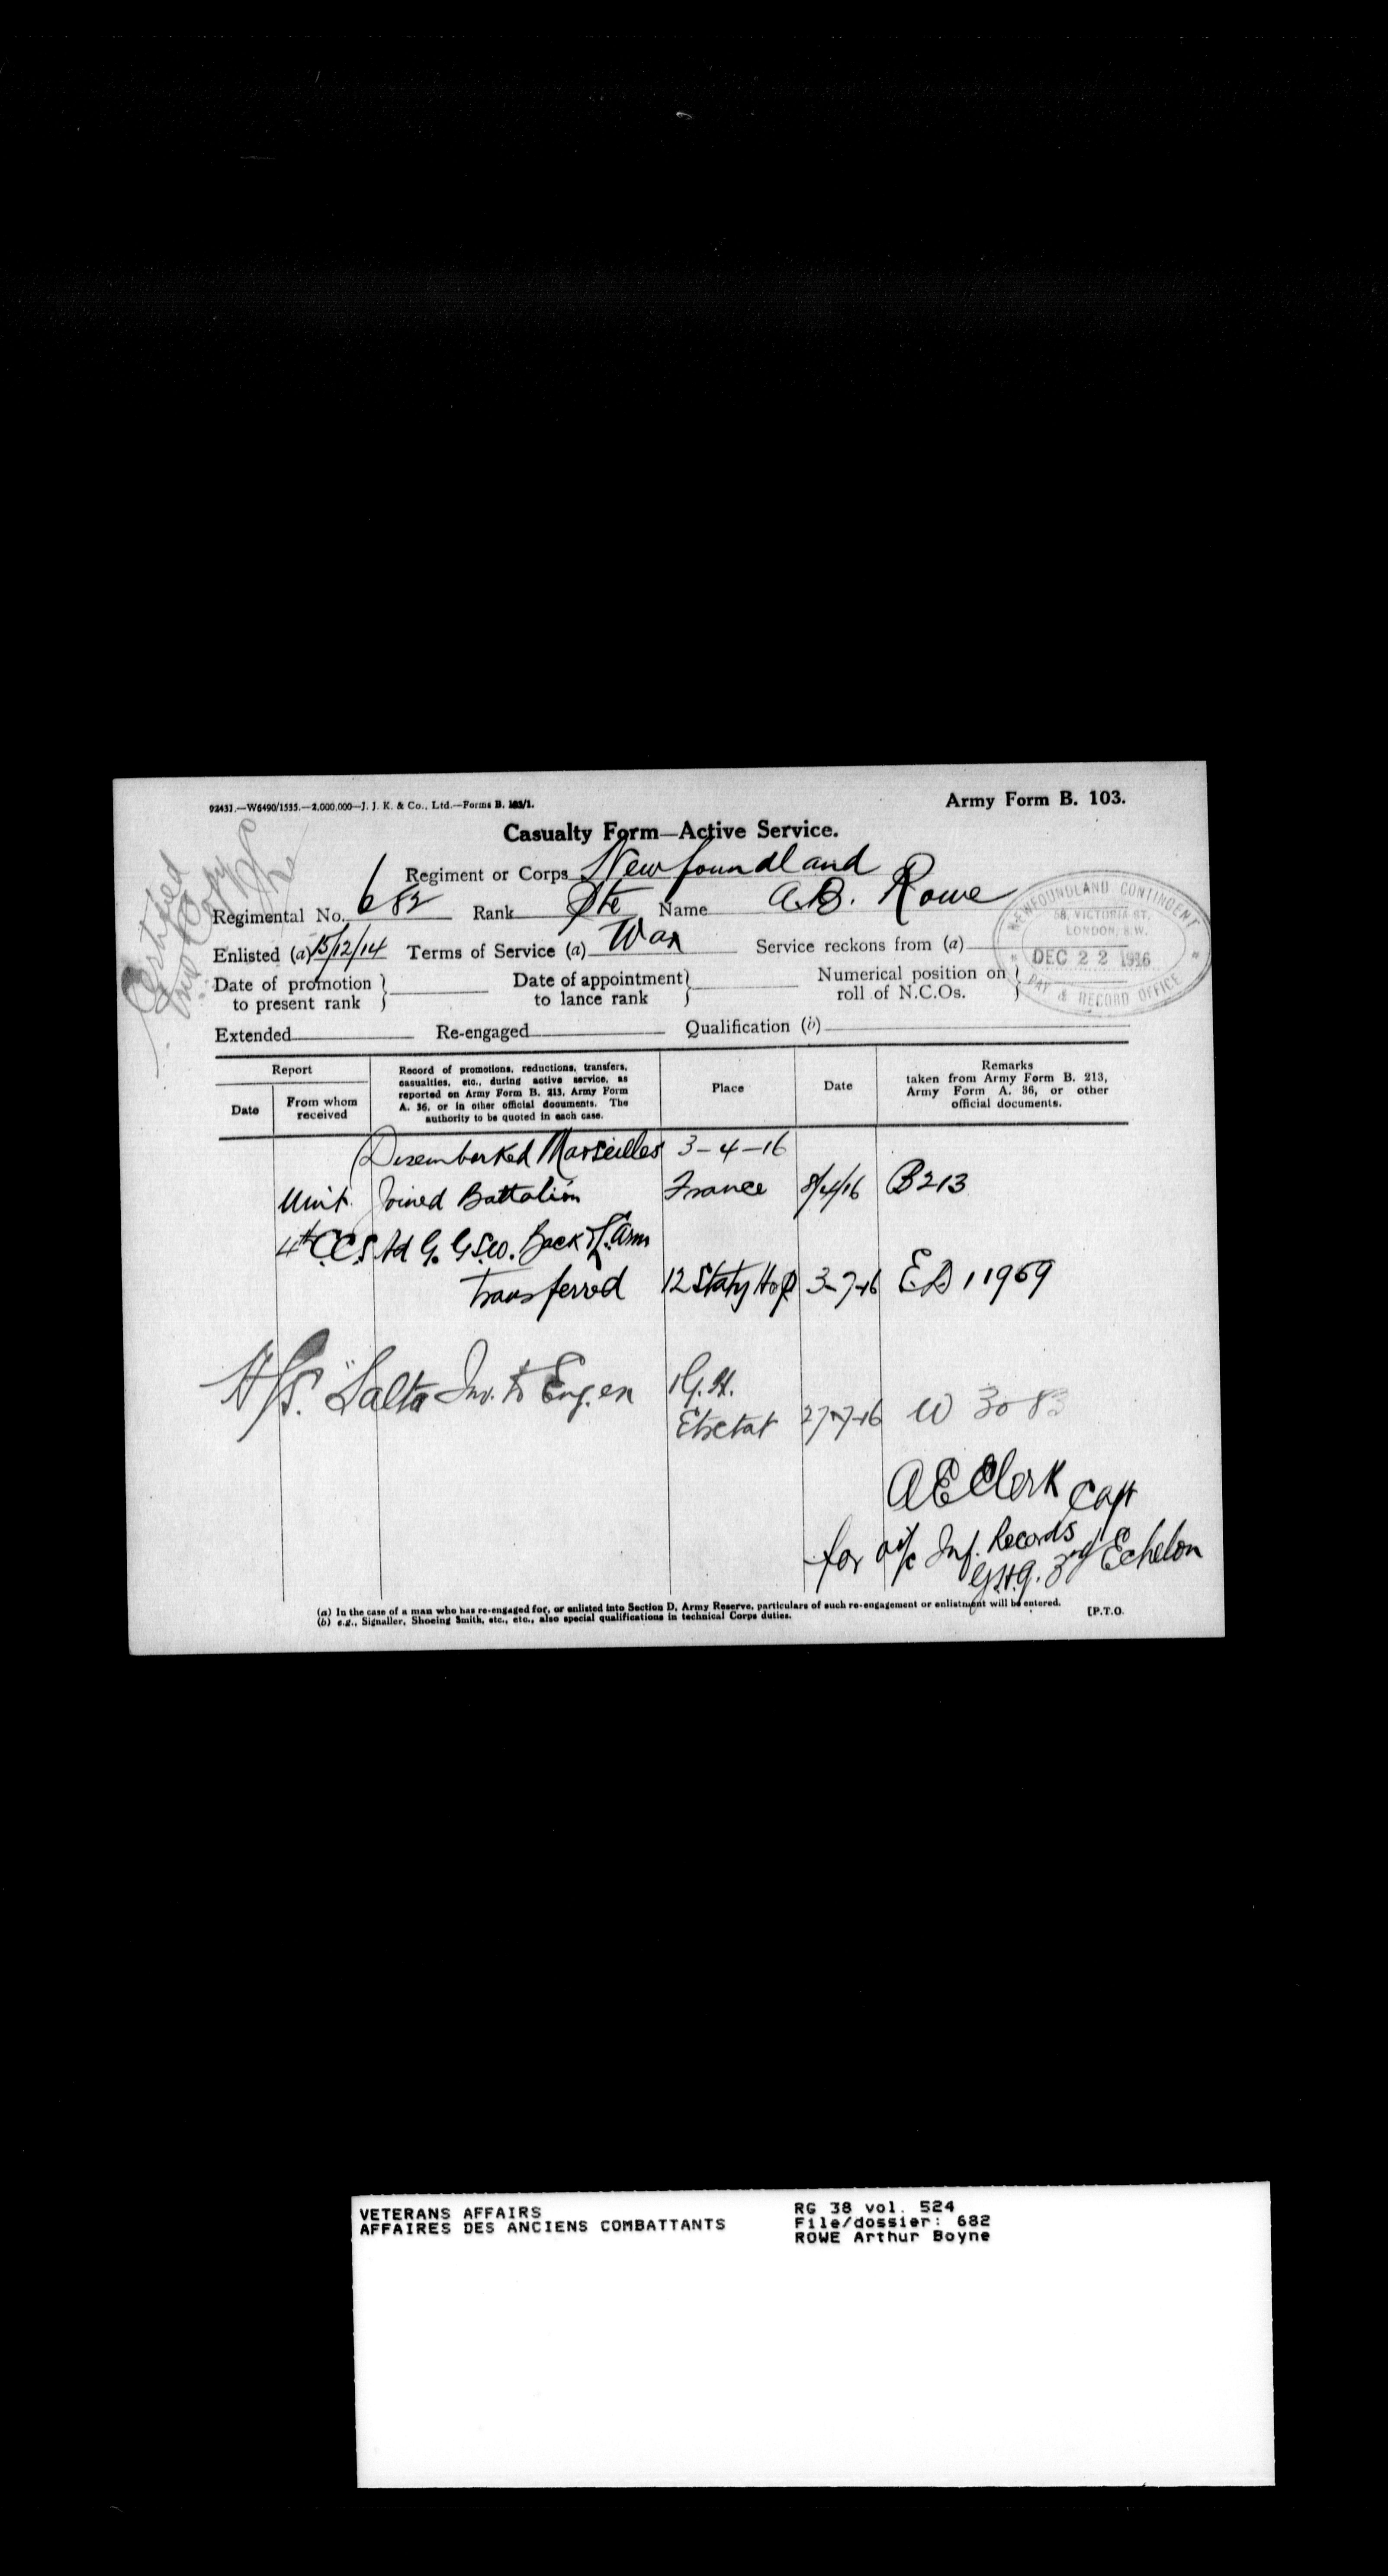 92431.—W6490/1535.—2,000,000—J. J. K. & Co., Ltd.—Forms B. 103/1.
Army Form B. 103.
Casualty Form—Active Service.
Certified True Copy
Regiment or Corps Newfoundland
Regimental No. 682 Rank Pte Name A.B. Rowe
Enlisted (a) 15/12/14 Terms of Service (a) War Service reckons from (a)
Date of promotion to present rank } Date of appointment to lance rank } Numerical position on roll of N.C.Os. }
Extended Re-engaged Qualification (b)
NEWFOUNDLAND CONTINGENT
58, VICTORIA ST.
LONDON, S.W.
DEC 22 1916
PAY & RECORD OFFICE
Report
Date
From whom received
Record of promotions, reductions, transfers, casualties, etc., during active service, as reported on Army Form B. 213, Army Form A. 36, or in other official documents. The authority to be quoted in each case.
Place
Date
Remarks
taken from Army Form B. 213, Army Form A. 36, or other official documents.
Disembarked Marseilles 3-4-16
Unit Joined Battalion France 8/4/16 B213
4th C.C.S. Ad G. G.S.W. Back & Arm
transferred 12 Staty Hop 3-7-16 ED 11969
H/S. "Salta Inv. to Eng. ex 1 G.H.
Etretat 27-7-16 W 3083
A E Clerk Capt
for o i/c Inf. Records
G.H.Q. 3rd Echelon
(a) In the case of a man who has re-engaged for, or enlisted into Section D, Army Reserve, particulars of such re-engagement or enlistment will be entered.
(b) e.g., Signaller, Shoeing Smith, etc., etc., also special qualifications in technical Corps duties.
[P.T.O.
VETERANS AFFAIRS
AFFAIRES DES ANCIENS COMBATTANTS
RG 38 vol. 524
File/dossier: 682
ROWE Arthur Boyne